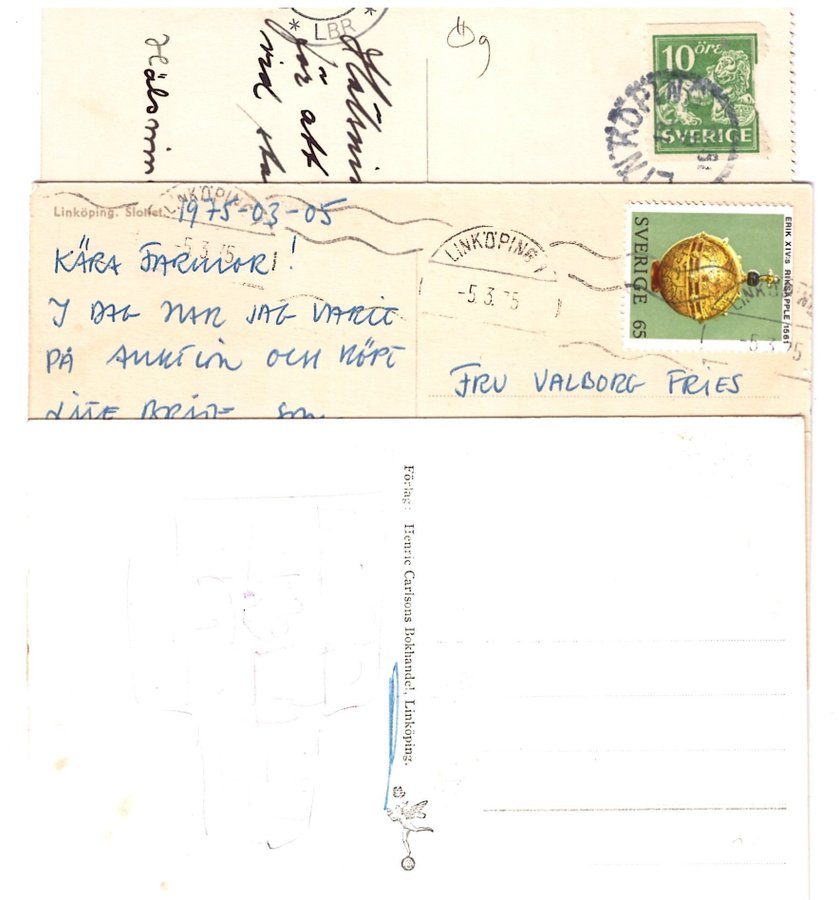 LBR
Ög
Hälsnin
för att
vid sta
Hälsnin
10 ÖRE
SVERIGE
LINKÖPING
Linköping. Slottet.
1975-03-05
LINKÖPING 1
-5.3.75
KÄRA FARMOR!
I DAG HAR JAG VARIT
PÅ AUKTION OCH KÖPT
LINKÖPING 1
-5.3.75
SVERIGE 65
ERIK XIV:s RIKSÄPPLE/1561
LINKÖPING
-5.3.75
FRU VALBORG FRIES
Förlag: Henric Carlsons Bokhandel, Linköping.